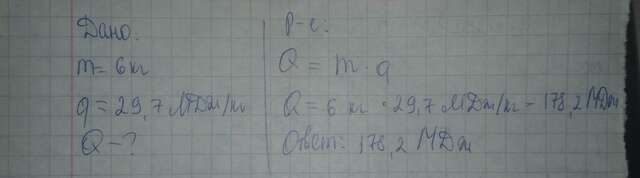 Дано:
m = 6 кг
q = 29,7 МДж/кг
Q - ?
Р-е:
Q = m · q
Q = 6 кг · 29,7 МДж/кг = 178,2 МДж
Ответ: 178,2 МДж